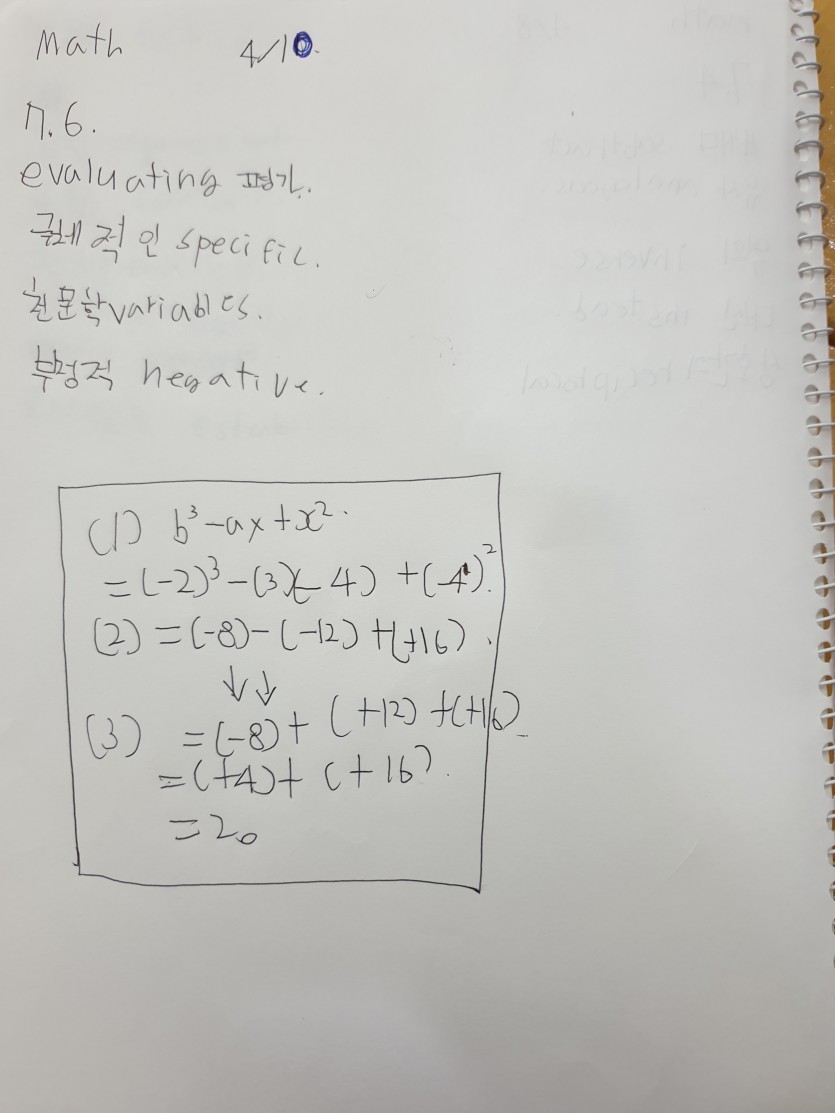 Math 4/10.
7.6.
evaluating 평가.
구체적인 specific.
천문학 variables.
부정적 negative.
(1) b³-ax+x².
=(-2)³-(3)(-4)+(-4)².
(2) =(-8)-(-12)+(+16).
↓↓
(3) =(-8)+(+12)+(+16)
=(+4)+(+16).
=20